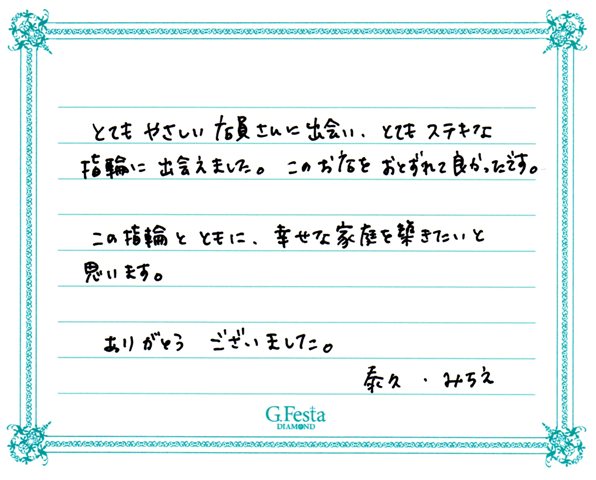 とても やさしい 店員さんに 出会い、とても ステキな
指輪に 出会えました。このお店を おとずれて良かったです。
この指輪と ともに、幸せな家庭を築きたいと
思います。
ありがとう ございました。
泰久・みちえ
G.Festa
DIAMOND